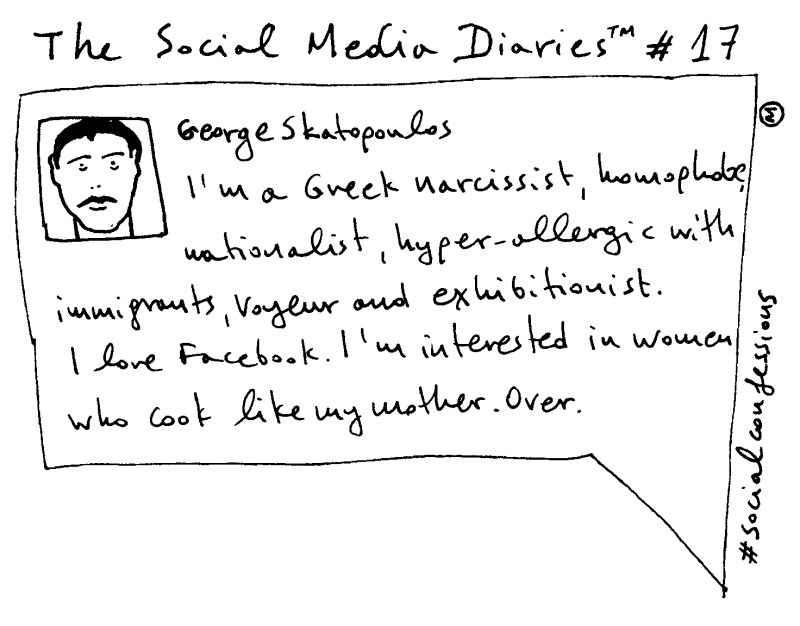 The Social Media Diaries™ # 17
George Skatopoulos
I'm a Greek narcissist, homophobe,
nationalist, hyper-allergic with
immigrants, voyeur and exhibitionist.
I love Facebook. I'm interested in women
who cook like my mother. Over.
#socialconfessions
Ⓜ